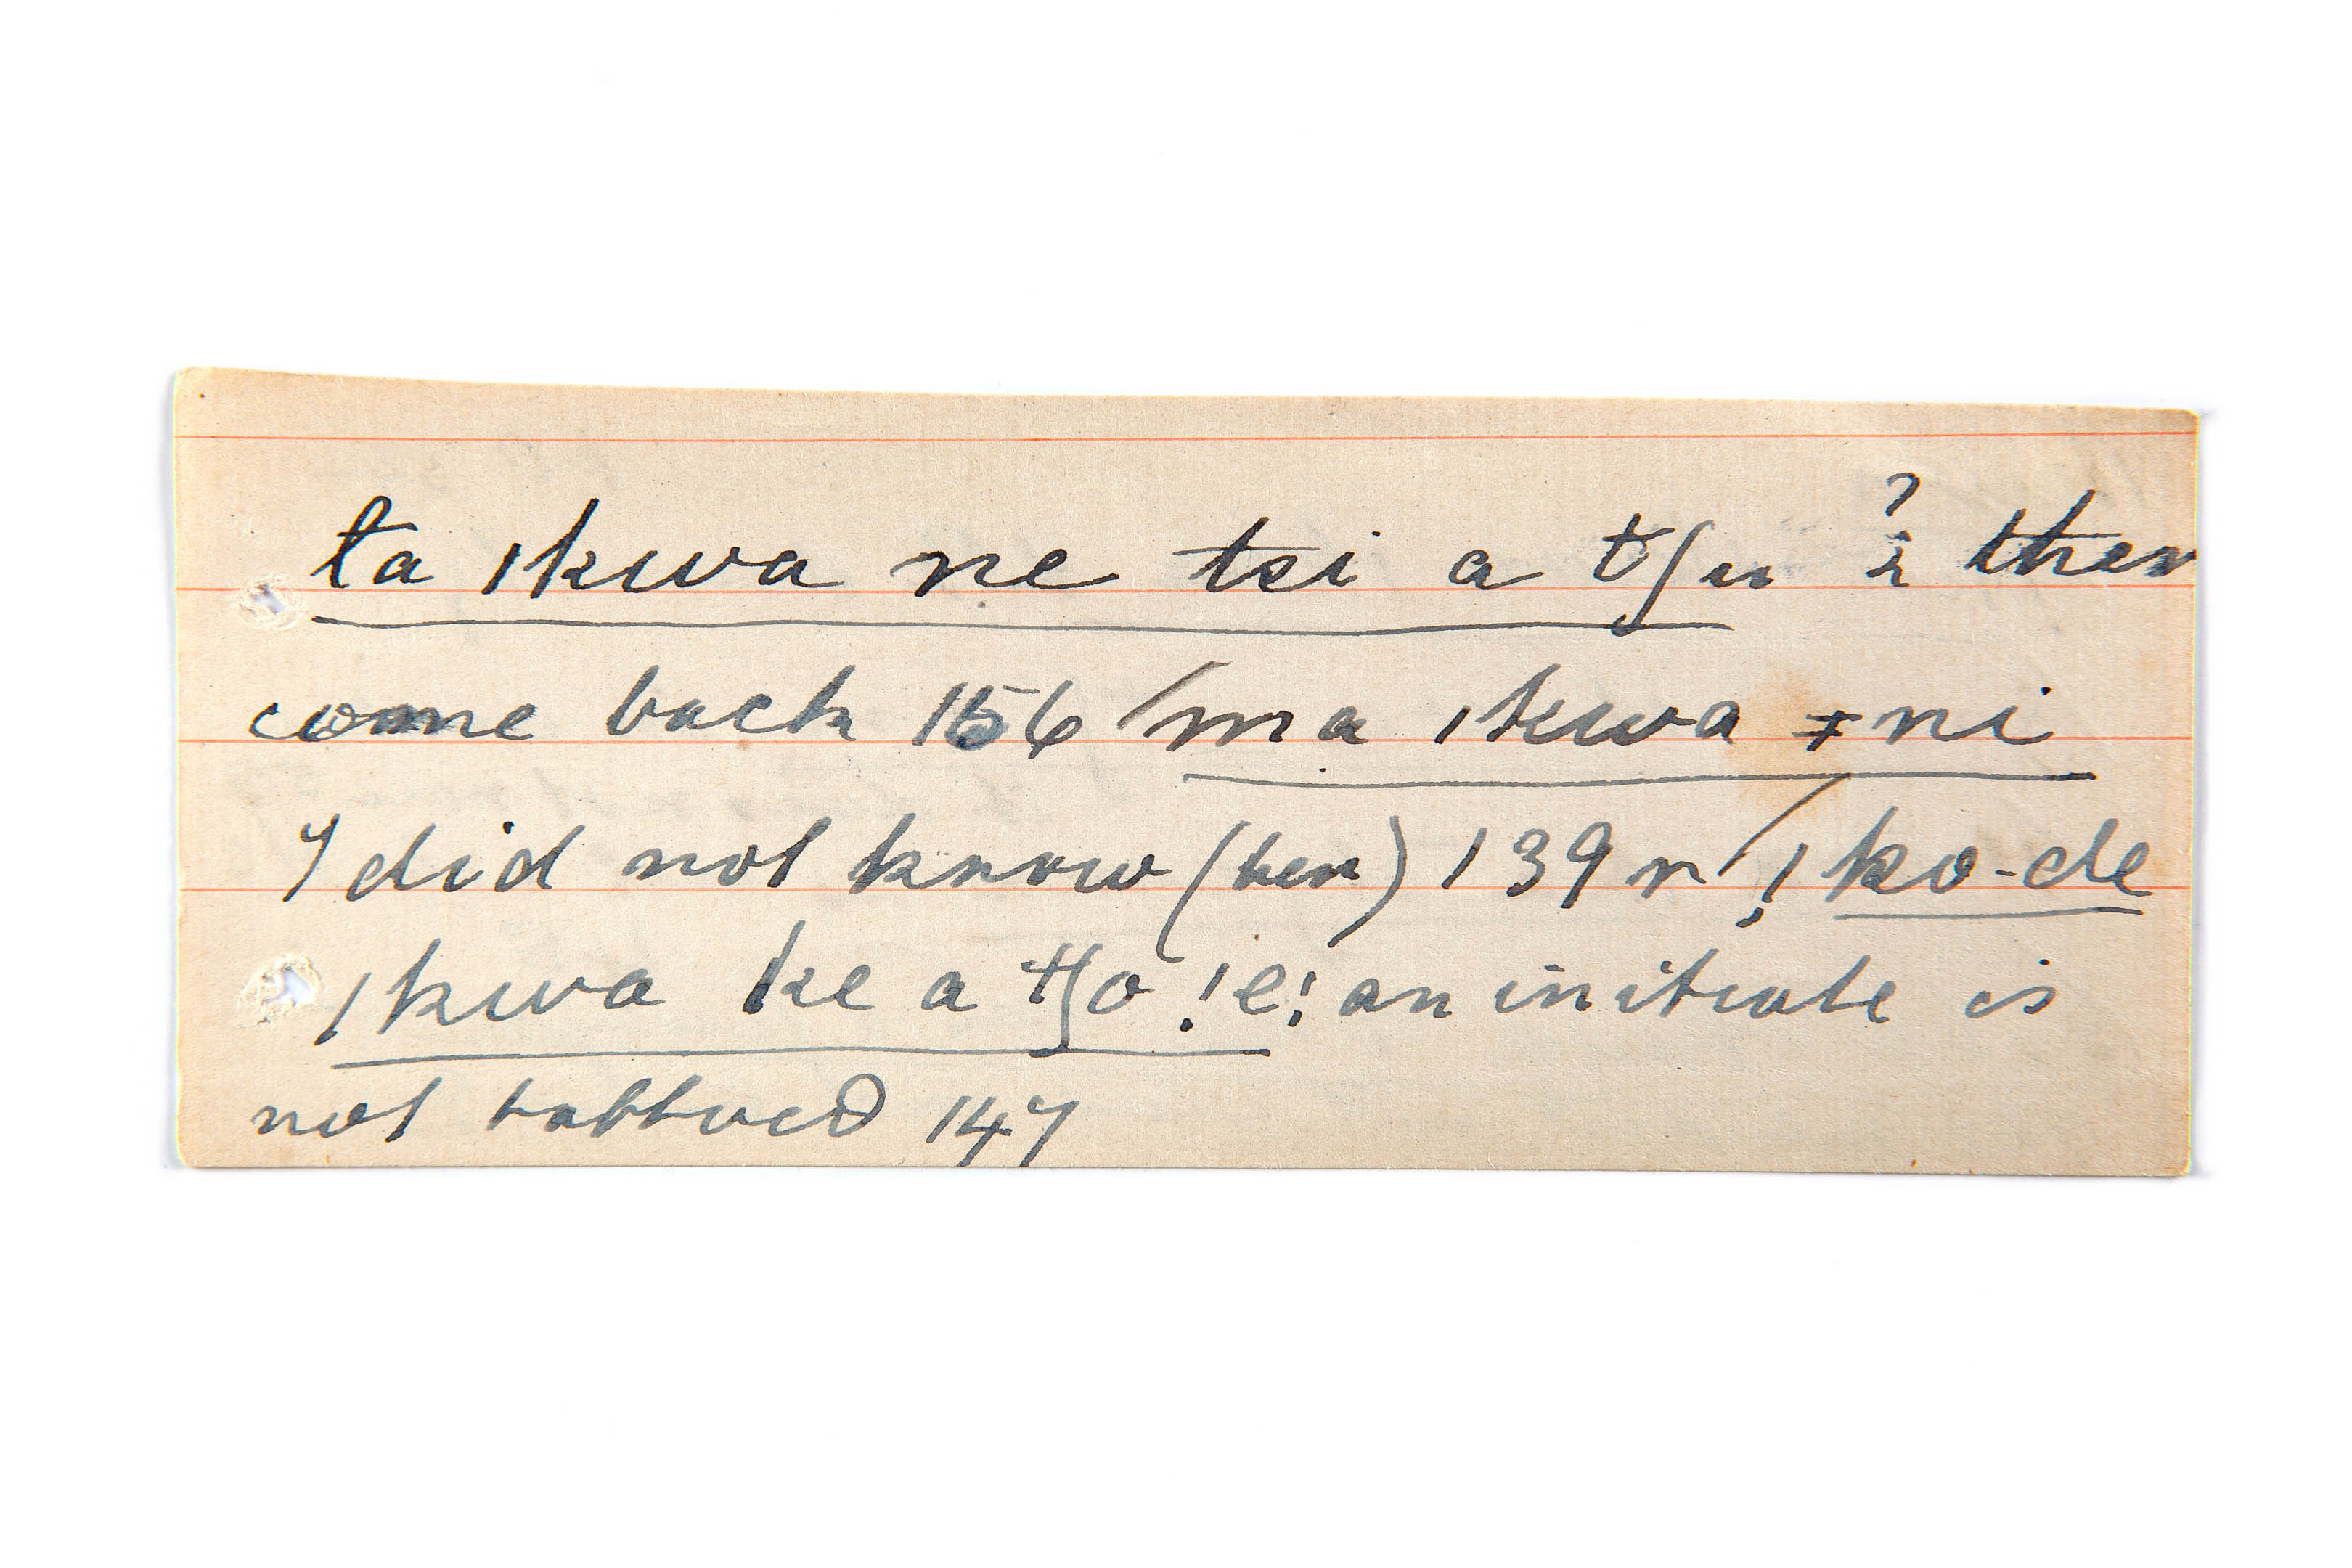 ta ǀkwa ne tsi a tʃu ? 2 then
come back 156 / ma ǀkwa ǂni
I did not know (her) 139 r / !ko-de
ǀkwa ke a tʃo !e! an initiate is
not tattooed 147